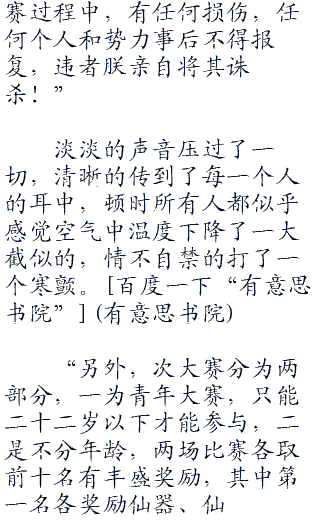 赛过程中，有任何损伤，任
何个人和势力事后不得报
复，违者朕亲自将其诛
杀！”
淡淡的声音压过了一
切，清晰的传到了每一个人
的耳中，顿时所有人都似乎
感觉空气中温度下降了一大
截似的，情不自禁的打了一
个寒颤。[百度一下“有意思
书院”] (有意思书院)
“另外，次大赛分为两
部分，一为青年大赛，只能
二十二岁以下才能参与，二
是不分年龄，两场比赛各取
前十名有丰盛奖励，其中第
一名各奖励仙器、仙